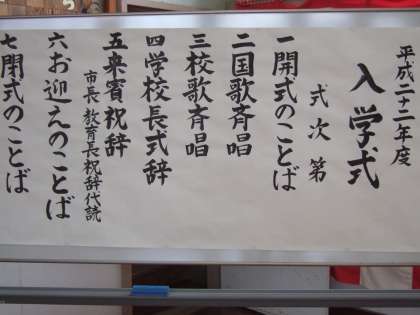 平成二十二年度
入学式
式次第
一開式のことば
二国歌斉唱
三校歌斉唱
四学校長式辞
五来賓祝辞
市長 教育長祝辞代読
六お迎えのことば
七閉式のことば